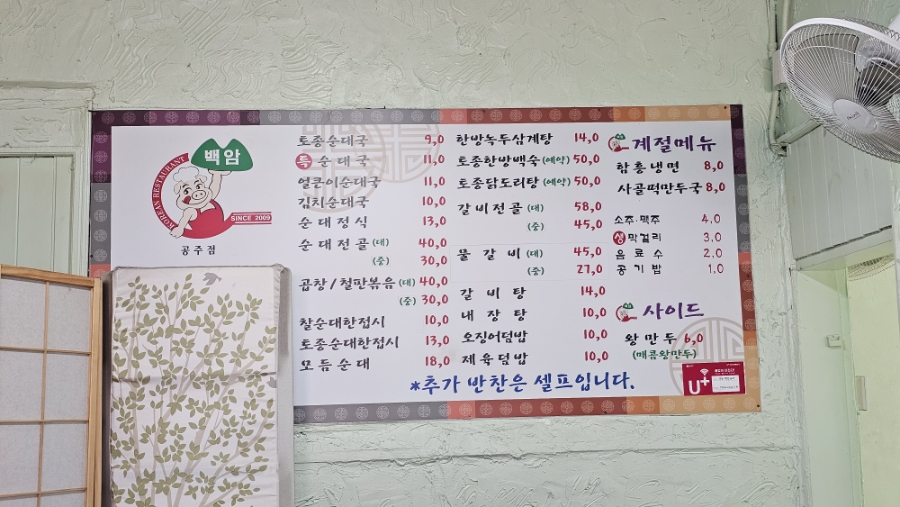 백암
KOREAN RESTAURANT
SINCE 2009
공주점
토종순대국 9,0
특 순대국 11,0
얼큰이순대국 11,0
김치순대국 10,0
순대정식 13,0
순대전골 (대) 40,0
(중) 30,0
곱창/철판볶음 (대) 40,0
(중) 30,0
찰순대한접시 10,0
토종순대한접시 13,0
모듬순대 18,0
한방녹두삼계탕 14,0
토종한방백숙 (예약) 50,0
토종닭도리탕 (예약) 50,0
갈비전골 (대) 58,0
(중) 45,0
물갈비 (대) 45,0
(중) 27,0
갈비탕 14,0
내장탕 10,0
오징어덮밥 10,0
제육덮밥 10,0
계절메뉴
함흥냉면 8,0
사골떡만두국 8,0
소주·맥주 4.0
생막걸리 3.0
음료수 2.0
공기밥 1.0
사이드
왕만두 6,0
(매콤왕만두)
*추가 반찬은 셀프입니다.
U+